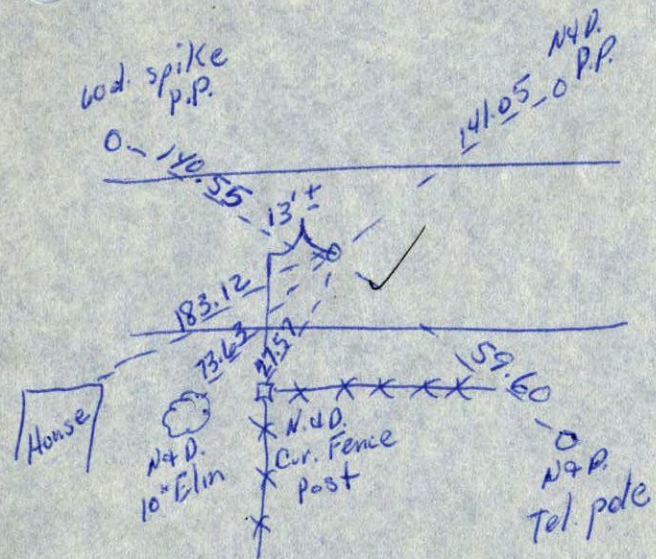 60d. spike
P.P.
N&D.
P.P.
140.55
141.05
13'±
183.12
73.63
27.57
59.60
House
N&D.
10" Elm
N.&D.
Cor. Fence
Post
N&D.
Tel. pole